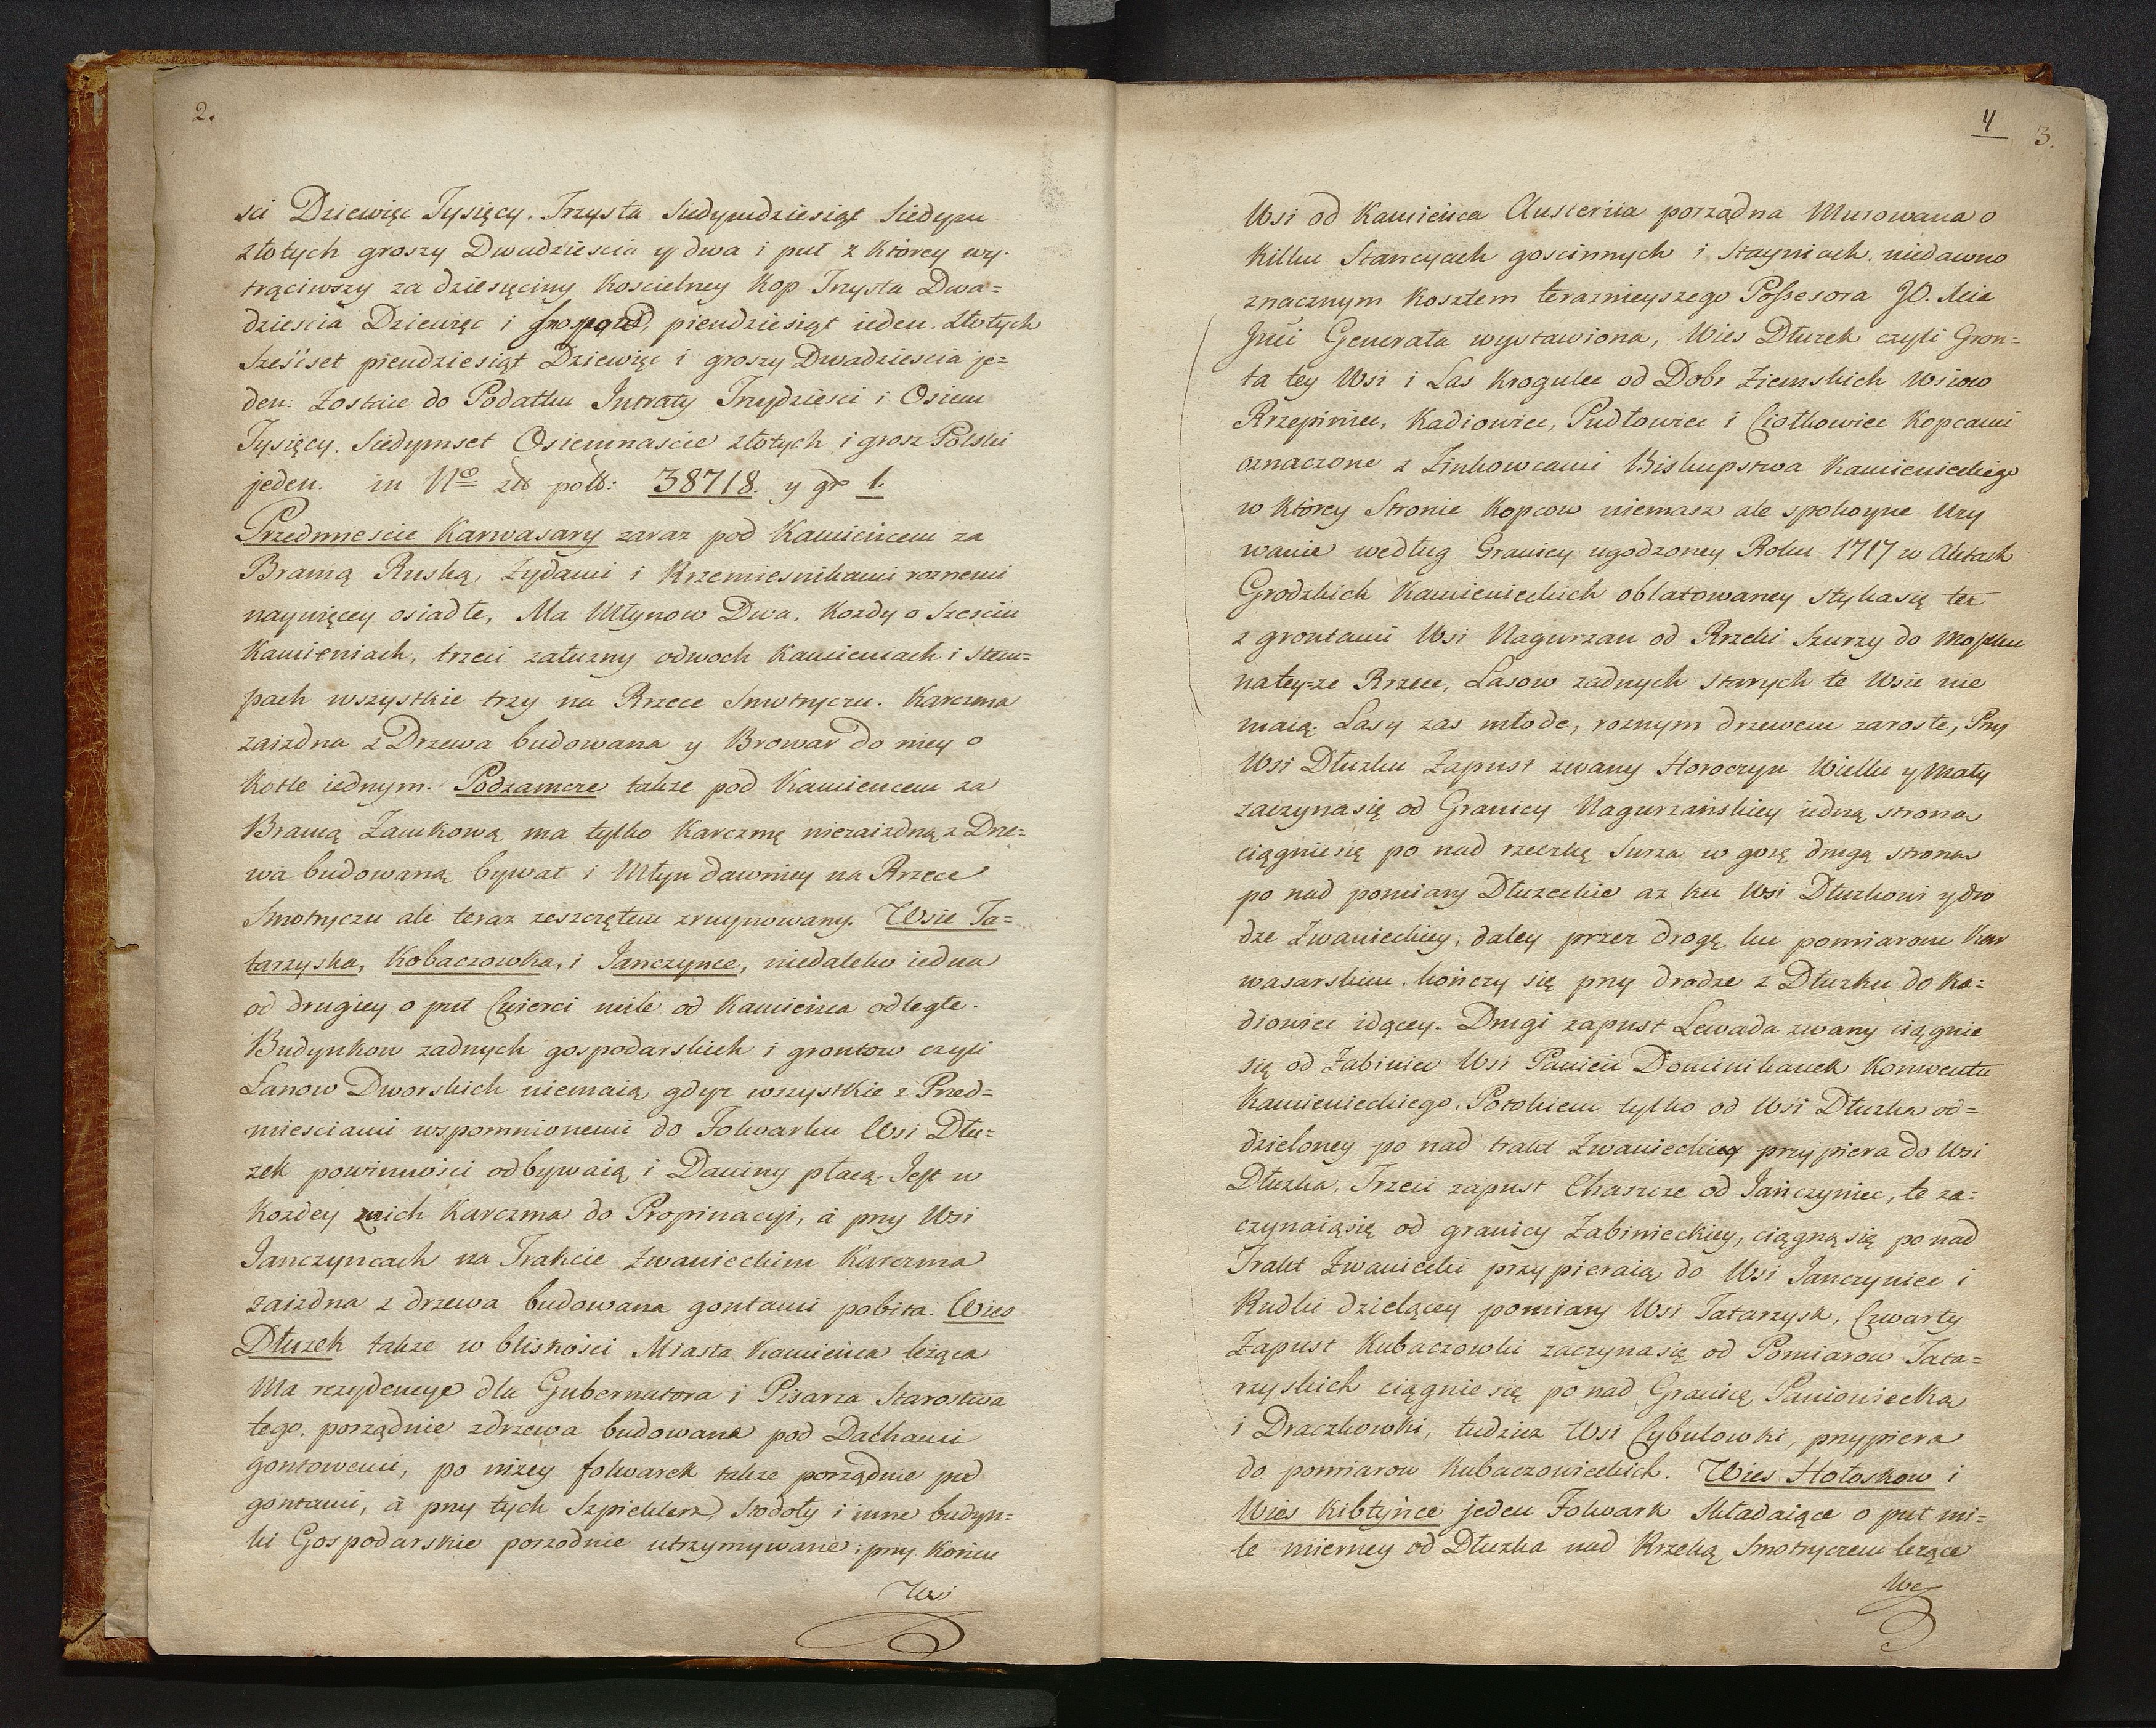 2.
sci Dziewięc Tysięcy. Trzysta Siedymdziesiąt Siedym
złotych groszy Dwadziescia y dwa i puł z którey wy-
trąciwszy za dziesięciny Koscielney Kop Trzysta Dwa=
dziescia Dziewięc i pieńdziesiąt ieden. Złotych
Sześćset pieńdziesiąt Dziewięc i groszy Dwadziescia je=
den. Zostaie do Podatku Intraty Trzydziesci i Osiem
Tysięcy. Siedymset Osiemnascie złotych i grosz Polski
jeden. in Nº złł polł: 38718. y gr 1.
Przedmiescie Karwasary zaraz pod Kamieńcem za
Bramą Ruską, Żydami i Rzemiesnikami roznemi
naywięcey osiadłe, Ma Młynow Dwa. Kozdy o Szesciu
Kamieniach, trzeci zatuzny odwoch Kamieniach i stem=
pach wszystkie trzy na Rzece Smotryczu. Karczma
zaizdna z Drzewa budowana y Browar do niey o
Kotle iednym. Podzamcze takze pod Kamiencem za
Bramą Zamkową ma tylko Karczmę niezaizdną z Drze=
wa budowaną bywał i Młyn dawniey na Rzece
Smotryczu ale teraz zeszczętem zruynowany. Wsie Ta=
tarzyska, Kobaczowka, i Janczynce, niedaleko iedna
od drugiey o puł Cwierci mile od Kamieńca odległe.
Budynkow zadnych gospodarskich i grontow czyli
Łanow Dworskich niemaią gdyz wszystkie z Przed=
miesciami wspomnionemi do Folwarku Wsi Dłu=
zek powinności odbywaią i Daniny płacą. Jest w
Kozdey z nich Karczma do Propinacyi, à przy Wsi
Janczyncach na Trakcie Zwanieckim Karczma
zaizdna z drzewa budowana gontami pobita. Wies
Dłuzek takze w bliskości Miasta Kamieńca leząca
Ma rezydencye dla Gubernatora i Pisarza Starostwa
tego. porządnie zdrzewa budowana pod Dachami
gontowemi, po nizey folwarek takze porządnie pod
gontami, à przy tych Szpichlerz, Stodoły i inne budyn=
ki Gospodarskie porzodnie utrzymywane; przy Końcu
Wsi
4
3.
Wsi od Kamieńca Austeriia porządna Murowana o
Kilku Stancyach goscinnych i Stayniach. niedawno
znacznym Kosztem teraznieyszego Possesora JO. Xcia
Jmci Generała wystawiona, Wies Dłuzek czyli Gron=
ta tey Wsi i Las Krogulec od Dobr Ziemskich Wsiow
Rzepiniec, Kadiowiec, Pudłowiec i Ciołkowiec Kopcami
oznaczone z Zinkowcami Biskupstwa Kamienieckiego
w Którey Stronie Kopcow niemasz ale spokoyne Uzy
wanie według Granicy ugodzoney Roku 1717 w Aktach
Grodzkich Kamienieckich oblatowaney stykasię też
z grontami Wsi Nagurzan od Rzeki Szurzy do Mostku
natey=ze Rzece, Lasow zadnych starych te Wsie nie
maią Lasy zas młode, roznym drzewem zarosłe, Przy
Wsi Dłuzku Zapust zwany Horoczyn Wielki y Mały
zaczynasię od Granicy Nagurzańskiey iedną strona
ciągniesię po nad rzeczką Surza w gorę drugą strona
po nad pomiary Dłuzeckie az ku Wsi Dłuzkowi y dro
dze Zwanieckiey, daley przez drogę ku pomiarom Kar
wasarskim. kończy się przy drodze z Dłuzku do Ka=
diowiec idącey. Drugi zapust Lewada zwany ciągnie
się od Zabiniec Wsi Panien Dominikanek Konwentu
Kamienieckiego, Potokiem tylko od Wsi Dłuzka od=
dzieloney po nad trakt Zwaniecki przypiera do Wsi
Dłuzka, Trzeci zapust Chaszcze od Jańczyniec, te za=
czynaiąsię od granicy Zabinieckiey, ciągną się ponad
Trakt Zwaniecki przypieraią do Wsi Janczyniec i
Rudki dzielącey pomiary Wsi Tatarzysk, Czwarty
Zapust Kubaczowki zaczynasię od Pomiarow Tata=
rzyskich ciągnie się ponad Granicę Paniowiecką
i Draczkowki, tudziez Wsi Cybulowki, przypiera
do pomiarow Kubaczowieckich. Wies Hołoskow i
Wies Kibłyńce jeden Folwark Składaiące o puł mi=
le mierney od Dłuzka nad Rzeką Smotryczem lezące